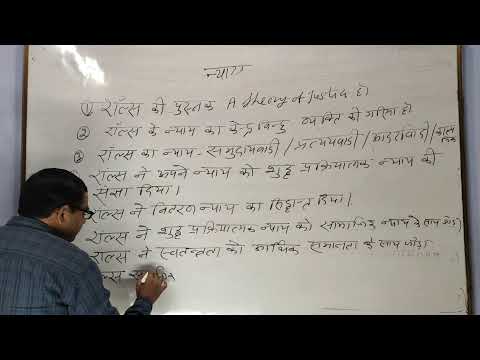 न्याय
① रॉल्स की पुस्तक A theory of Justice है।
② रॉल्स के न्याय का केन्द्रबिन्दु व्यक्ति की गरिमा है।
③ रॉल्स का न्याय - समुदायवादी / प्रत्ययवादी / आदर्शवादी /
रॉल्स ने अपने न्याय को शुद्ध प्रक्रियात्मक न्याय की
संज्ञा दिया।
रॉल्स ने वितरण न्याय का सिद्धान्त दिया।
रॉल्स ने शुद्ध प्रक्रियात्मक न्याय को सामाजिक न्याय के साथ जोड़ा
रॉल्स ने स्वतन्त्रता को आर्थिक समानता के साथ जोड़ा